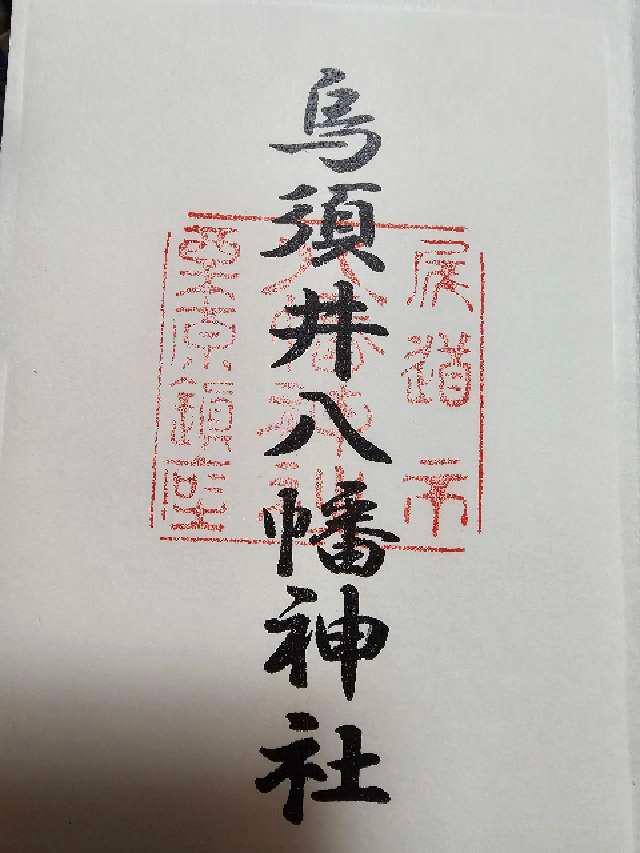 烏須井八幡神社
尾道市
八幡神社
栗原鎮座